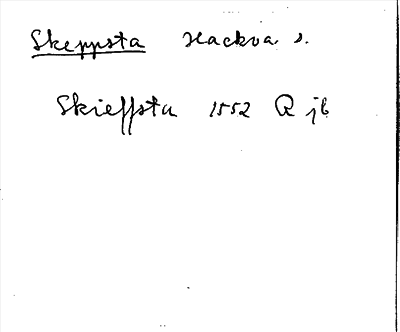 Skeppsta Hackva s.
Skieffsta 1552 R jb